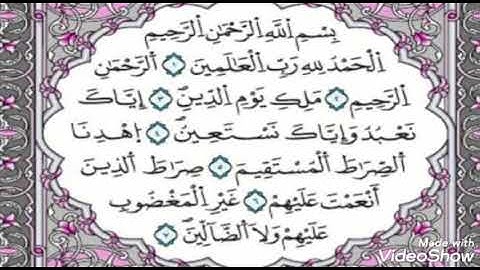 بِسْمِ اللَّهِ الرَّحْمَٰنِ الرَّحِيمِ
الْحَمْدُ لِلهِ رَبِّ الْعَالَمِينَ الرَّحْمَٰنِ
الرَّحِيمِ مَلِكِ يَوْمِ الدِّينِ إِيَّاكَ
نَعْبُدُ وَإِيَّاكَ نَسْتَعِينُ اِهْدِنَا
الصِّرَاطَ الْمُسْتَقِيمَ صِرَاطَ الذِينَ
أَنْعَمْتَ عَلَيْهِمْ غَيْرِ الْمَغْضُوبِ
عَلَيْهِمْ وَلَا الضَّالِّينَ
Made with
VideoShow